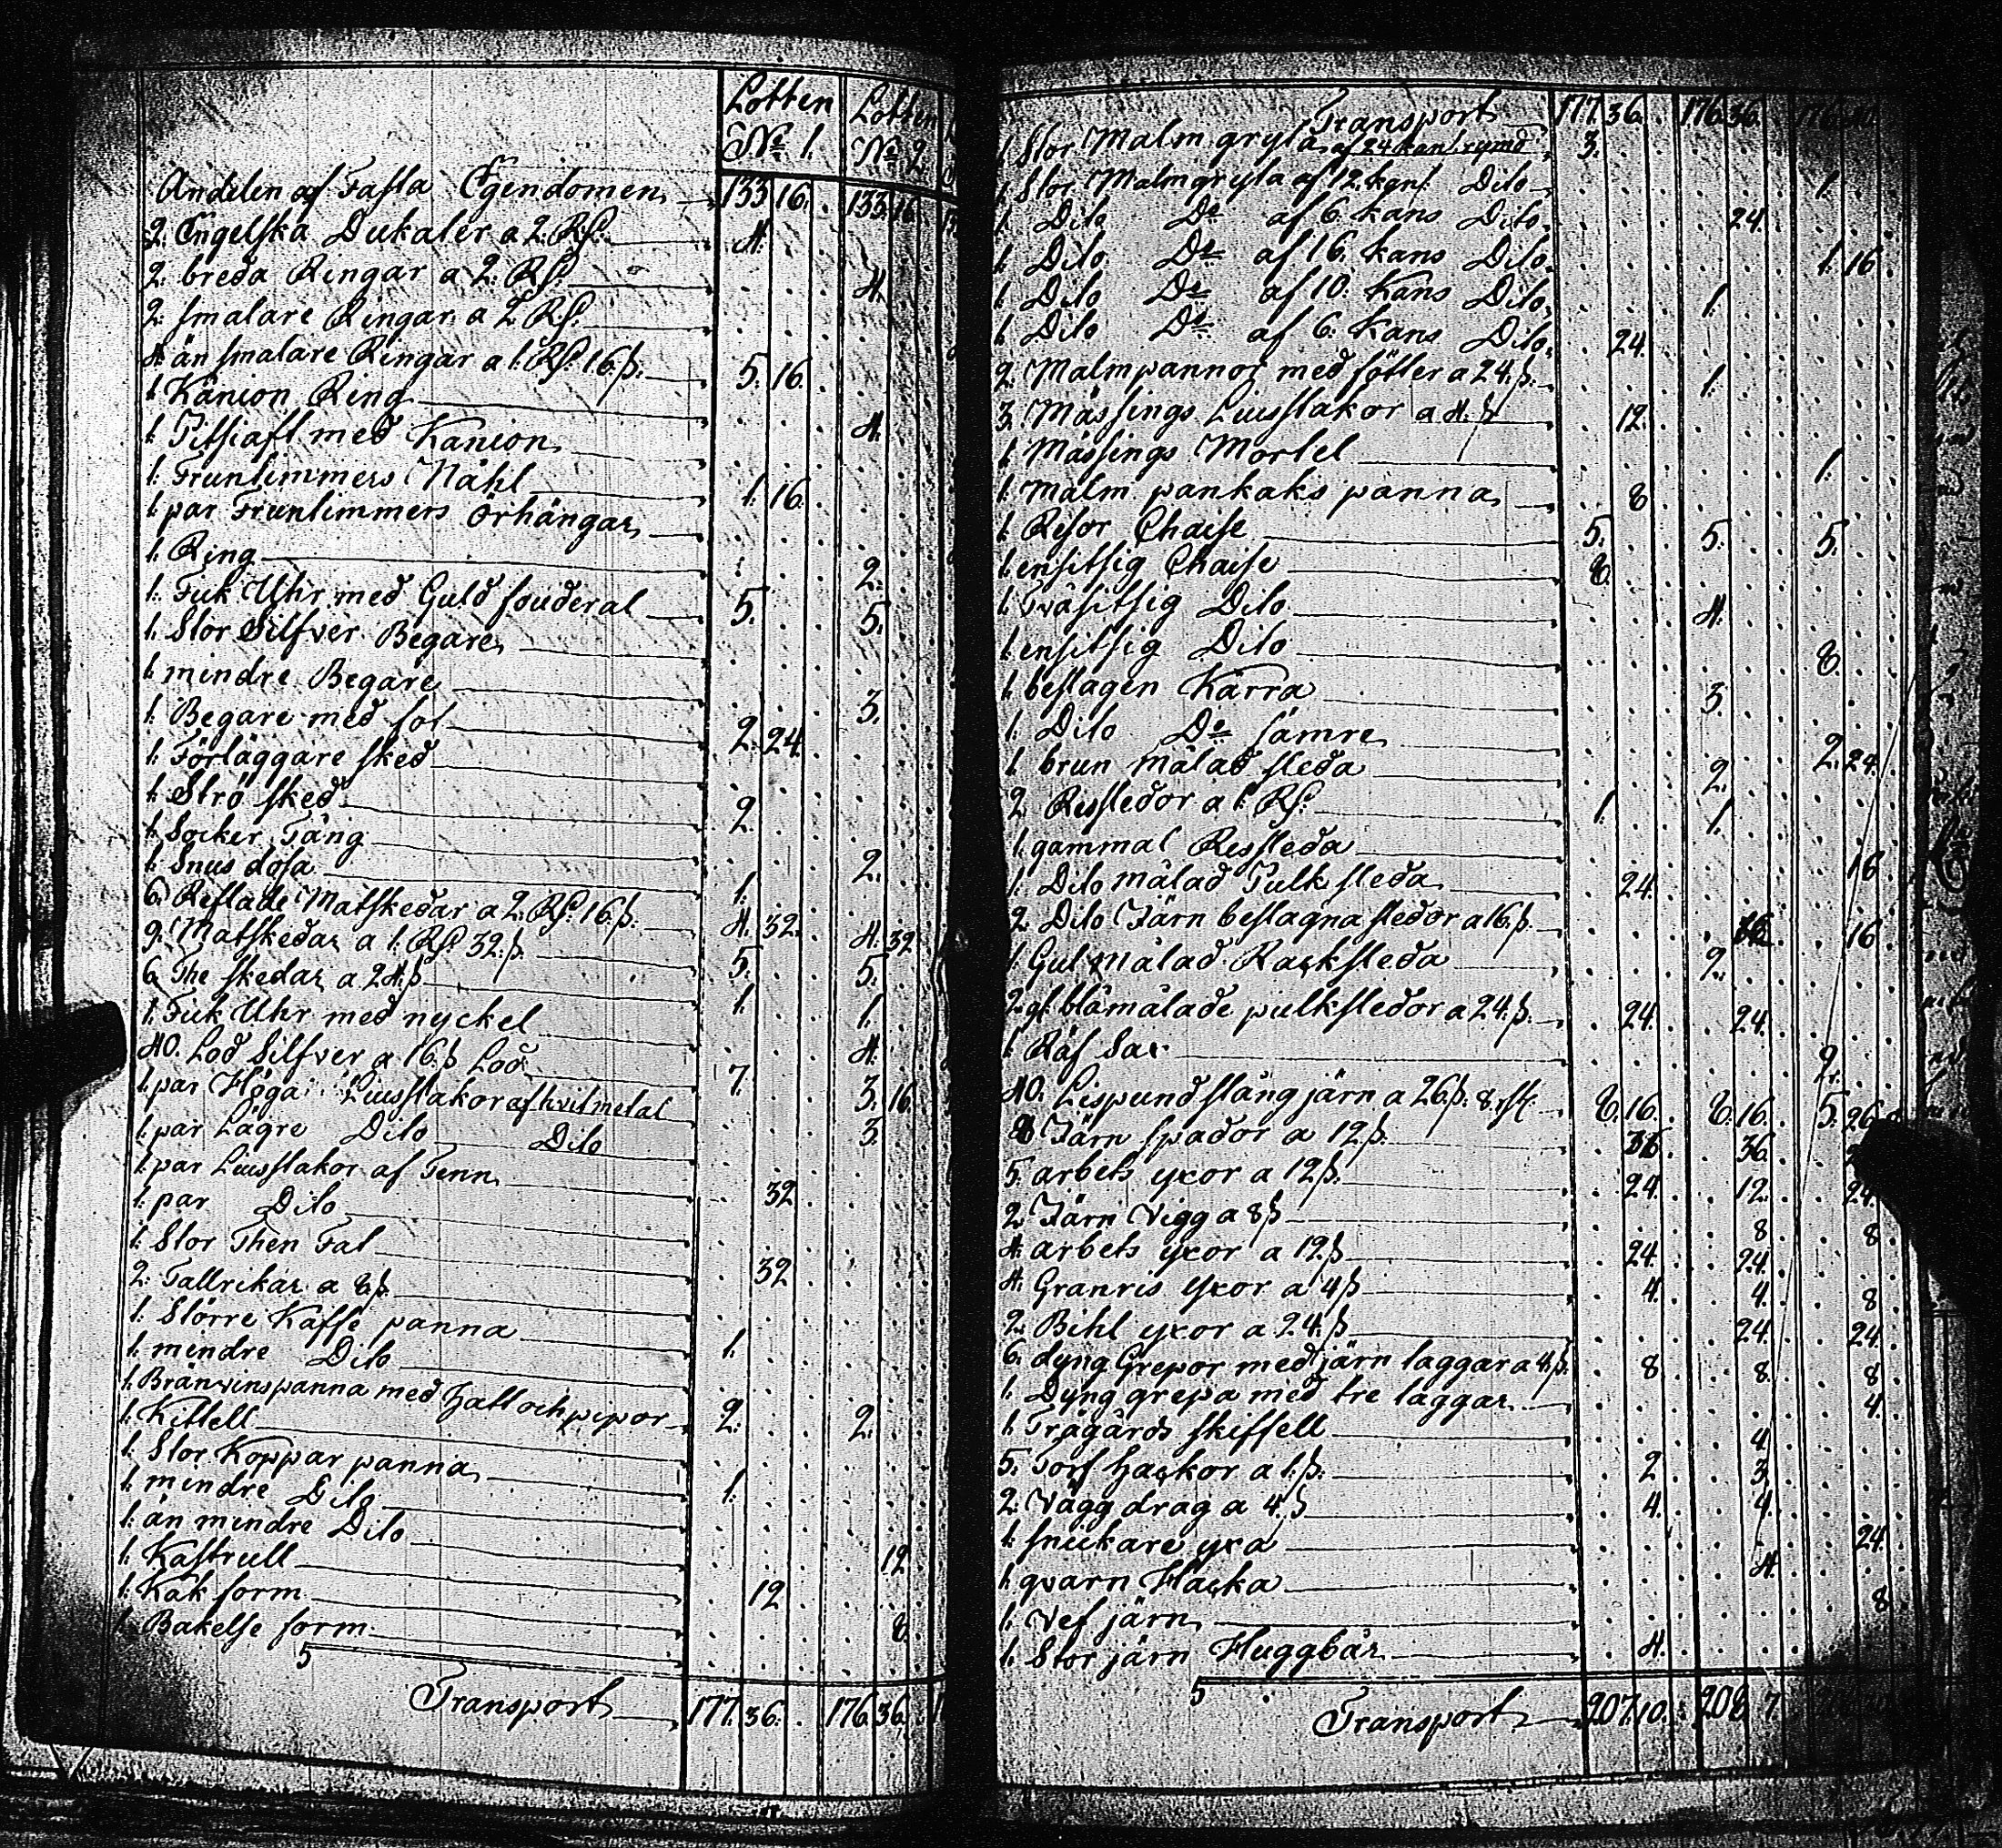 Lotten Lotten
No 1. No 2.
Andelen af Fasta Egendomen 133 16. 133 16.
2. Engelska Dukater a 2. Rd. 4.
2. breda Ringar a 2. Rd. 4.
2. smalare Ringar a 2 Rd.
4. än smalare Ringar a 1. Rd. 16 ß. 5. 16.
1 Känion Ring
1. Pitsiaft med Kanion 4.
1. Fruntimmers Nåhl
1 par Fruntimmers örhängar 1. 16.
1. Ring
1. Fick Uhr med Guld fouderal 5. 2. 5.
1. Stor Silfver Begare
1. mindre Begare
1. Begare med fot 3.
1. Förläggare sked 2. 24.
1. Strö sked
1. Socker Tång 2.
1. Snus dosa 2.
6. Reflade Matskedar a 2. Rd. 16. ß. 1. 4. 32. 4. 32
9. Matskedar a 1. Rd. 32. ß.
6 The skedar a 24 ß 5. 5.
1. Fick Uhr med nyckel 1. 1.
40. Lod Silfver a 16. ß Lod 4.
1. par Höga Liusstakor af hvit metal 7. 3. 16.
1. par Lägre Dito Dito 3.
1. par Liusstakor af Tenn
1. par Dito 32
1. Stor Then Fat
2. Tallrikar a 8 ß. 32
1. Större Kaffe panna
1. mindre Dito 1.
1. Bränvinspanna med hatt och pipor
1. Kittell 2. 2.
1. Stor Koppar panna
1. mindre Dito 1.
1. än mindre Dito
1. Kastrull 12
1. Kak form 12
1. Bakelse form 8
5
Transport 177. 36. 176. 36.
Transport 177. 36. 176. 36.
1. Stor Malm gryta af 24 kans rymd 3.
1. Stor Malmgryta af 12. kans Dito 1.
1. Dito Do af 6. kans Dito. 24.
1. Dito. Do af 16. kans Dito. 1. 16.
1. Dito Do af 10. Kans Dito. 1.
1. Dito Do af 6. Kans Dito. 24.
2. Malmpannor med fötter a 24. ß. 1.
3. Mässings Liusstakor a 4. ß 12.
1. Mässings Mortel 1.
1. Malm pankaks panna 8
1. Resor Chaise 5. 5. 5.
1. ensitsig Chaise 8.
1. Tvåsitsig Dito 4.
1. ensitsig Dito 8.
1. beslagen Kärra 3.
1. Dito Do sämre 2. 24.
1. brun målad sleda 2.
2 Ressledor a 1. Rd. 1. 1.
1. gammal Ressleda 16
1. Dito målad Pulk sleda 24.
2. Dito Järn beslagna sledor a 16. ß. 16
1 Gul målad Racksleda 2.
2. gl. blåmålade pulksledor a 24. ß. 24. 24.
1 Räf Sax 2.
40. Lispund stång järn a 26 ß. 8. 8. 16. 8. 16. 5. 26
8 Järn spador a 12 ß. 36 36.
5. arbets yxor a 12 ß. 24. 12. 24.
2 Järn Vigg a 8 ß 8 8
4. arbets yxor a 12. ß 24. 24.
4. Granris yxor a 4 ß 4. 4. 8
2. Bihl yxor a 24. ß 24. 24.
6. dyng Grepor med järn laggar a 4. ß. 8 8. 8
1. Dyng grepa med tre laggar 4.
1 Trägårds skiffell 4
5. Torf hackor a 1. ß. 2 3
2. Vägg drag a 4. ß 4. 4.
1. snickare yxa 24.
1. qvarn Hacka 4.
1. Vef järn 8
1. Stor järn Huggbär 4.
5
Transport 207. 10. 208. 7